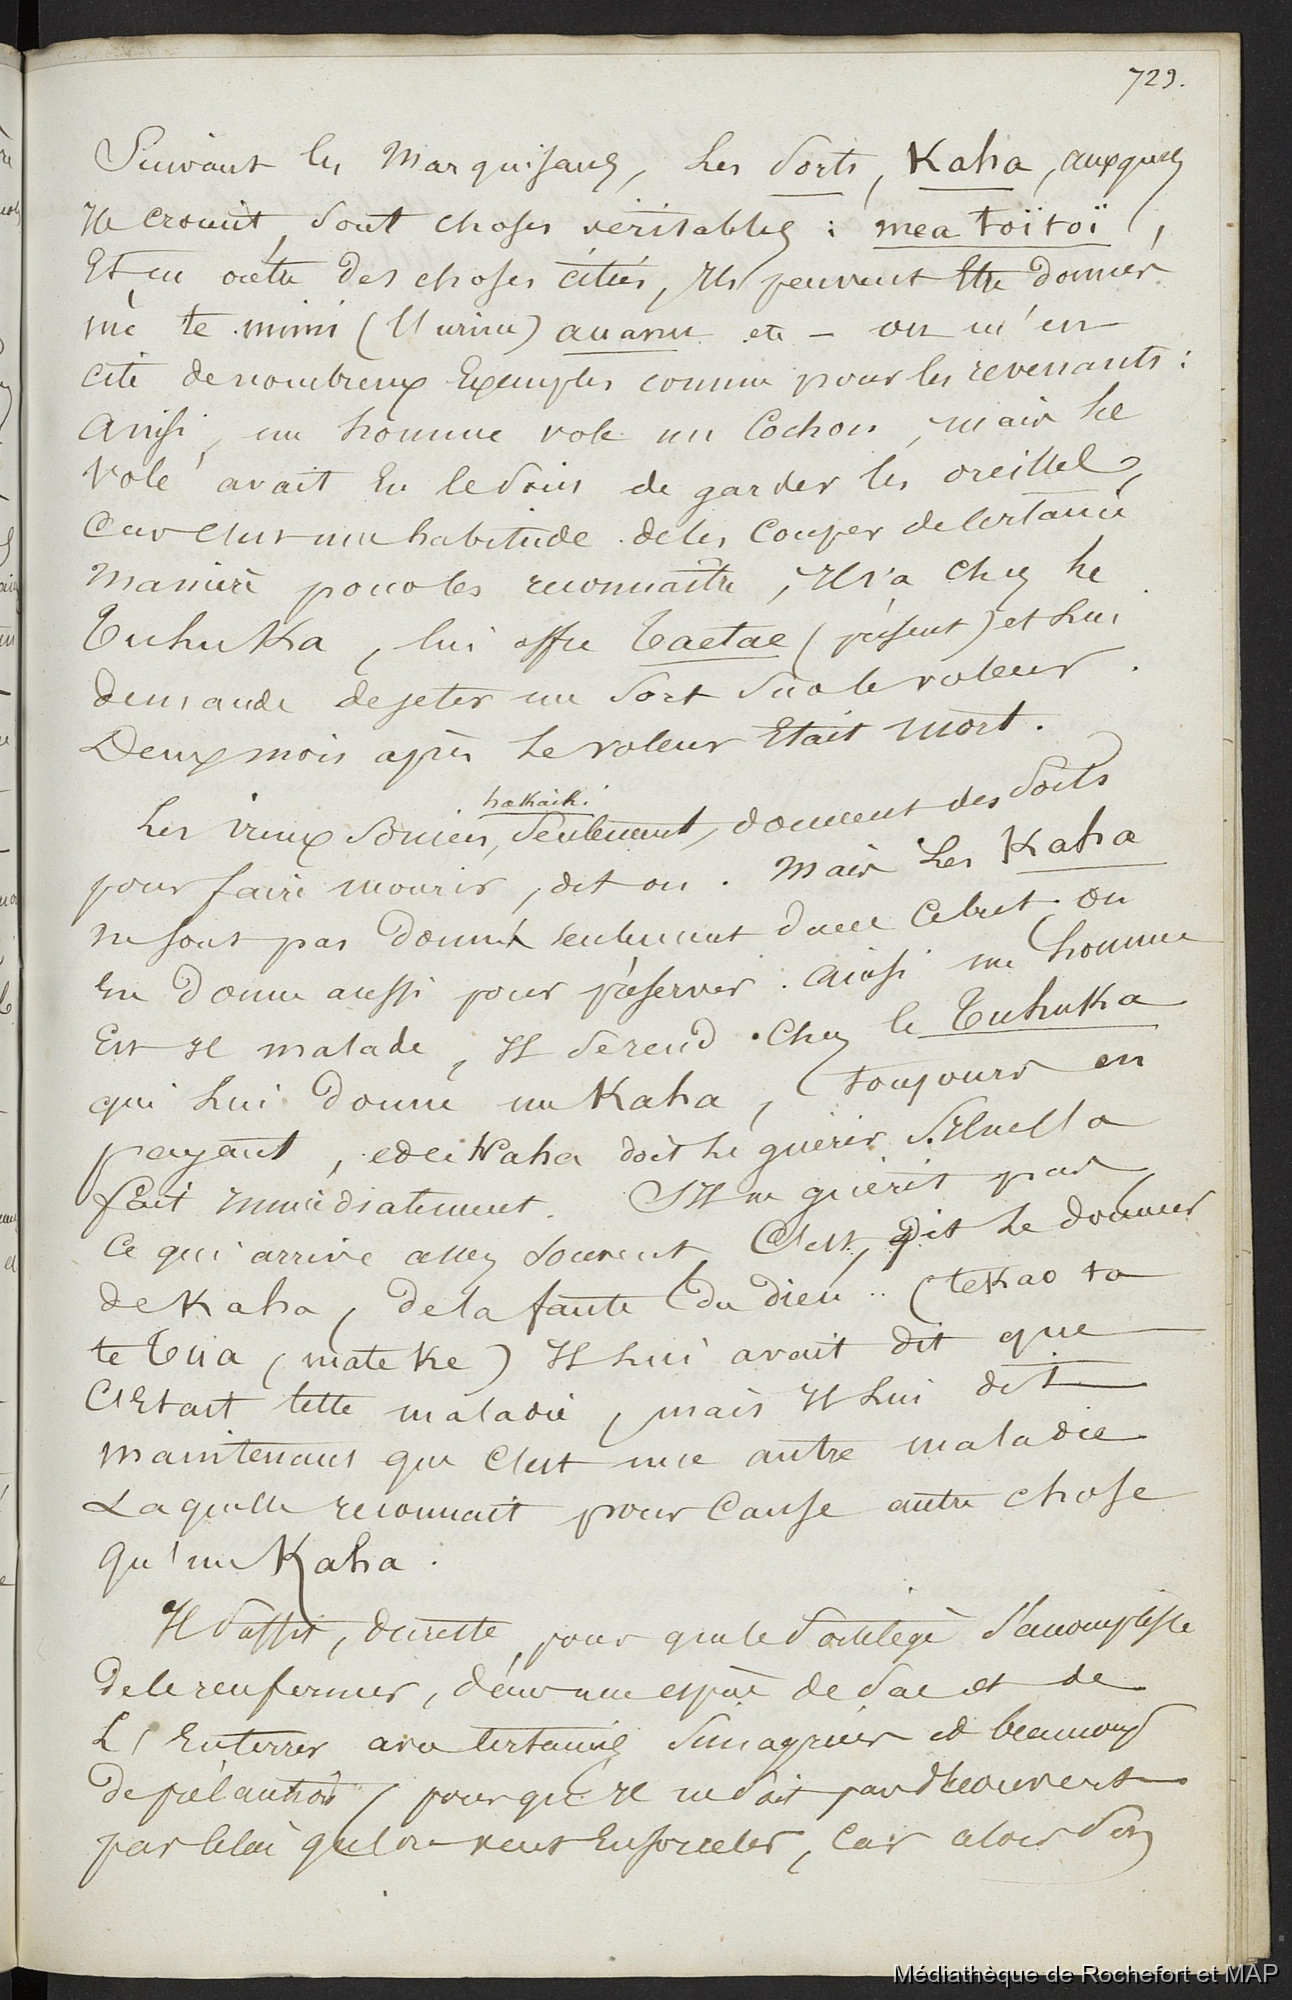 729.
Suivant les Marquisans, les sorts, Kaha, auxquels
Ils croient, sont choses véritables : mea toïtoï,
Et en outre des choses citées, Ils peuvent Etre donnés
me te mimi (l'urine) etc – on m'en
cite de nombreux Exemples comme pour les revenants :
Ainsi, un homme vole un Cochon, mais le
volé avait Eu le soin de garder les oreilles,
Car c'est une habitude de les Couper de certaine
manière pour les reconnaître, Il va chez le
Tuhuka, lui offre Taetae (présent) et lui
demande de jeter un sort sur le voleur.
Deux mois après le voleur Etait mort.
hakaiki
Les vieux sorciers, seulement, donnent des sorts
pour faire mourir, dit on. Mais les Kaha
ne sont pas donnés seulement dans ce but. on
En donne aussi pour préserver. Ainsi un homme
Est Il malade, Il se rend chez le Tuhuka
qui lui donne un Kaha, toujours en
payant, et ce Kaha doit le guérir
fait immédiatement. S'Il ne guérit pas,
Ce qui arrive assez souvent, C'est, dit le donneur
de Kaha, de la faute du dieu .. (tekao ta
te Tua (mate ke) Il lui avait dit que
C'Etait telle maladie, mais Il lui dit
maintenant que C'est une autre maladie
Laquelle reconnait pour Cause autre chose
qu'un Kaha.
Il suffit, du reste, pour que le sortilège s'accomplisse
de le renfermer, dans une espèce de sac et de
L'Enterrer avec certaines simagrées et beaucoup
de précautions, pour qu'Il ne soit pas découvert
par celui qu'on veut Ensorceler, Car alors son
Médiathèque de Rochefort et MAP